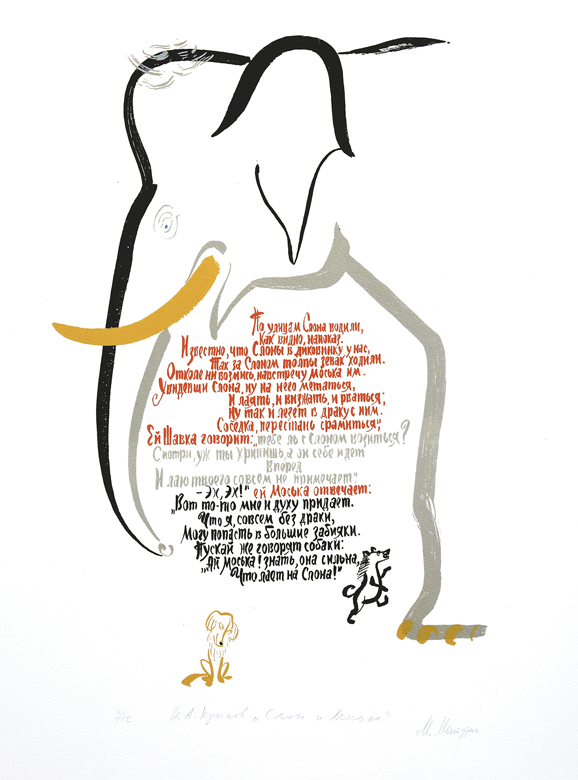 По улицам Слона водили,
Как видно, напоказ.
Известно, что Слоны в диковинку у нас,
Так за Слоном толпы зевак ходили.
Отколе ни возьмись, навстречу Моська им.
Увидевши Слона, ну на него метаться,
И лаять, и визжать, и рваться;
Ну так и лезет в драку с ним.
Соседка, перестань срамиться",
Ей Шавка говорит: „тебе ль с Слоном возиться?
Смотри, уж ты хрипишь, а он себе идет
Вперед
И лаю твоего совсем не примечает"
– Эх, эх!" ей Моська отвечает:
„Вот то-то мне и духу придает.
Что я, совсем без драки,
Могу попасть в большие забияки.
Пускай же говорят собаки:
„Ай Моська! знать, она сильна,
Что лает на Слона!"
И. А. Крылов „Слон и Моська"
М. Митурич